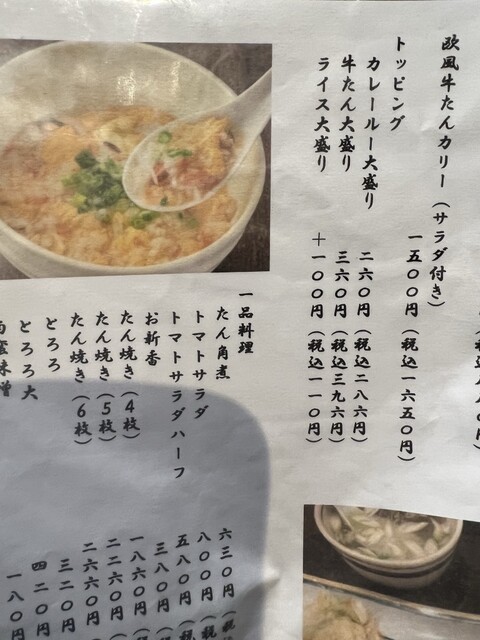 欧風牛たんカリー(サラダ付き)
一五〇〇円(税込一六五〇円)
トッピング
カレールー大盛り 二六〇円(税込二八六円)
牛たん大盛り 三六〇円(税込三九六円)
ライス大盛り +一〇〇円(税込一一〇円)
一品料理
たん角煮 六三〇円(税
トマトサラダ 八〇〇円(税
トマトサラダハーフ 五八〇円(税
お新香 三八〇円(税
たん焼き(4枚) 一八六〇円
たん焼き(5枚) 二二六〇円
たん焼き(6枚) 二六六〇円
とろろ 三二〇円
とろろ大 四二〇円
味噌 一八〇円